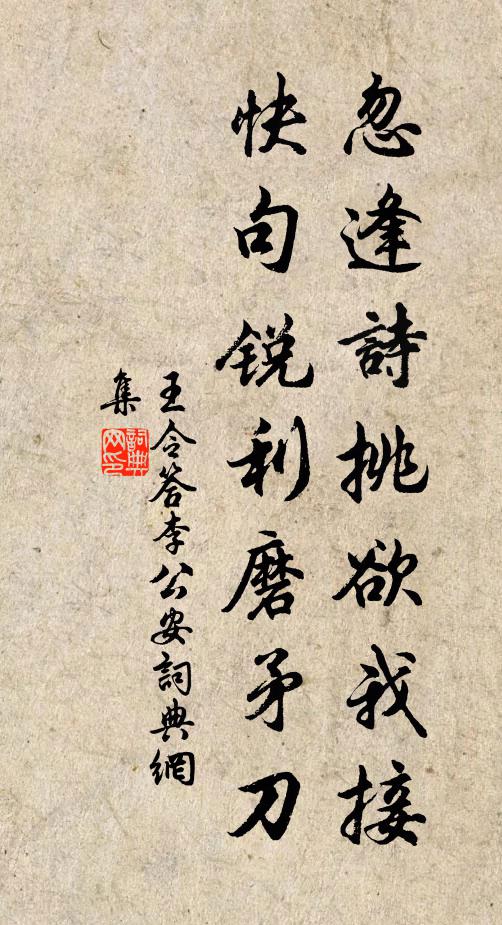 忽逢詩挑欲我接
快句銳利磨矛刀
王令答李公安詞典網
集
詞典網印